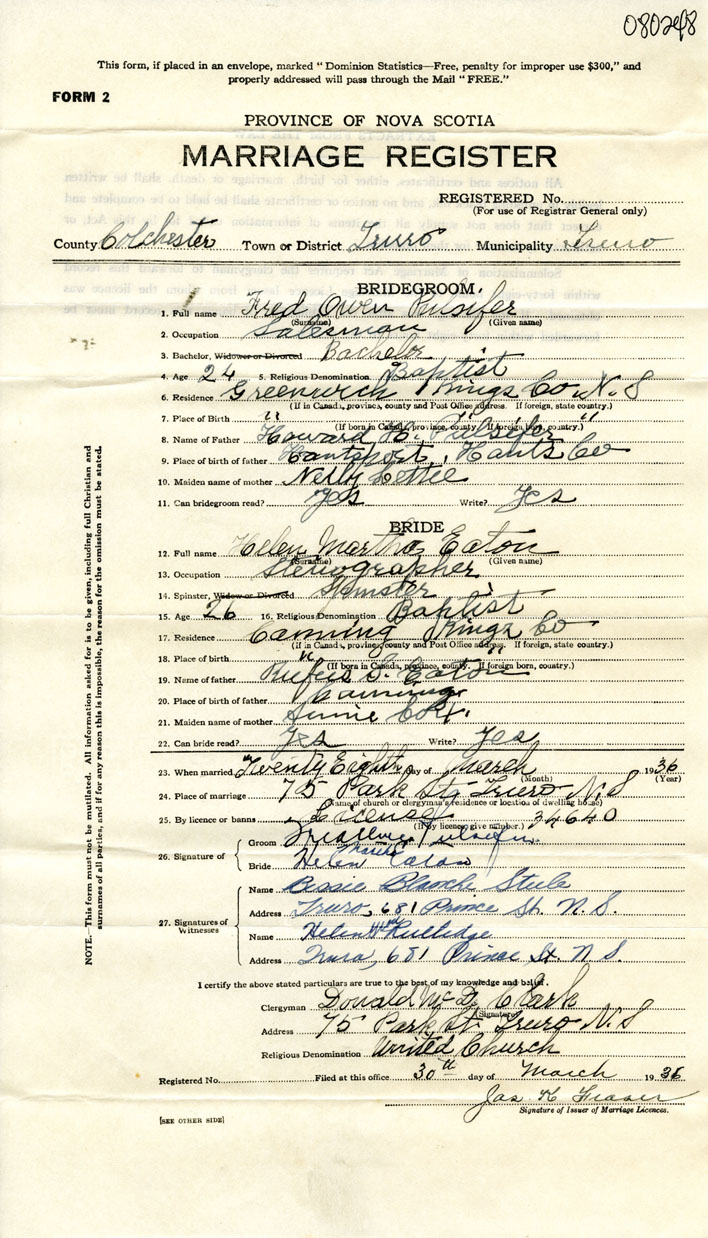 080248
This form, if placed in an envelope, marked "Dominion Statistics—Free, penalty for improper use $300," and
properly addressed will pass through the Mail "FREE."
FORM 2
PROVINCE OF NOVA SCOTIA
MARRIAGE REGISTER
REGISTERED No.
(For use of Registrar General only)
County Colchester Town or District Truro Municipality Truro
BRIDEGROOM.
1. Full name Fred Owen Pulsifer
(Surname) (Given name)
2. Occupation Salesman
3. Bachelor, Widower or Divorced Bachelor
4. Age 24 5. Religious Denomination Baptist
6. Residence Greenwich Kings Co N.S
(If in Canada, province, county and Post Office address. If foreign, state country.)
7. Place of Birth " " "
(If born in Canada, province, county. If foreign born, country.)
8. Name of Father Howard H. Pulsifer
9. Place of birth of father Hantsport, Hants Co
10. Maiden name of mother Nelly
11. Can bridegroom read? Yes Write? Yes
BRIDE
12. Full name Helen Martha Eaton
(Surname) (Given name)
13. Occupation Stenographer
14. Spinster, Widow or Divorced Spinster
15. Age 26 16. Religious Denomination Baptist
17. Residence Canning Kings Co
(If in Canada, province, county and Post Office address. If foreign, state country.)
18. Place of birth " "
(If born in Canada, province, county. If foreign born, country.)
19. Name of father Rufus S. Eaton
20. Place of birth of father Canning
21. Maiden name of mother Annie Cox.
22. Can bride read? Yes Write? Yes
23. When married Twenty Eighth day of March 1936
(Month) (Year)
24. Place of marriage 75 Park St. Truro N.S
(Name of church or clergyman's residence or location of dwelling house)
25. By licence or banns License 34640
(If by licence, give number.)
26. Signature of
Groom Pulsifer
Bride Helen Martha Eaton
27. Signatures of Witnesses
Name Bessie Blanche Steele
Address Truro, 681 Prince St. N.S.
Name Helen Rutledge
Address Truro, 681 Prince St. N.S.
I certify the above stated particulars are true to the best of my knowledge and belief.
Clergyman Donald McD. Clark
(Signature)
Address 75 Park St. Truro N.S
Religious Denomination United Church
Registered No. Filed at this office 30th day of March 1936
Jas K Fraser
Signature of Issuer of Marriage Licences.
[SEE OTHER SIDE]
NOTE. This form must not be mutilated. All information asked for is to be given, including full Christian and
surnames of all parties, and if for any reason this is impossible, the reason for the omission must be stated.